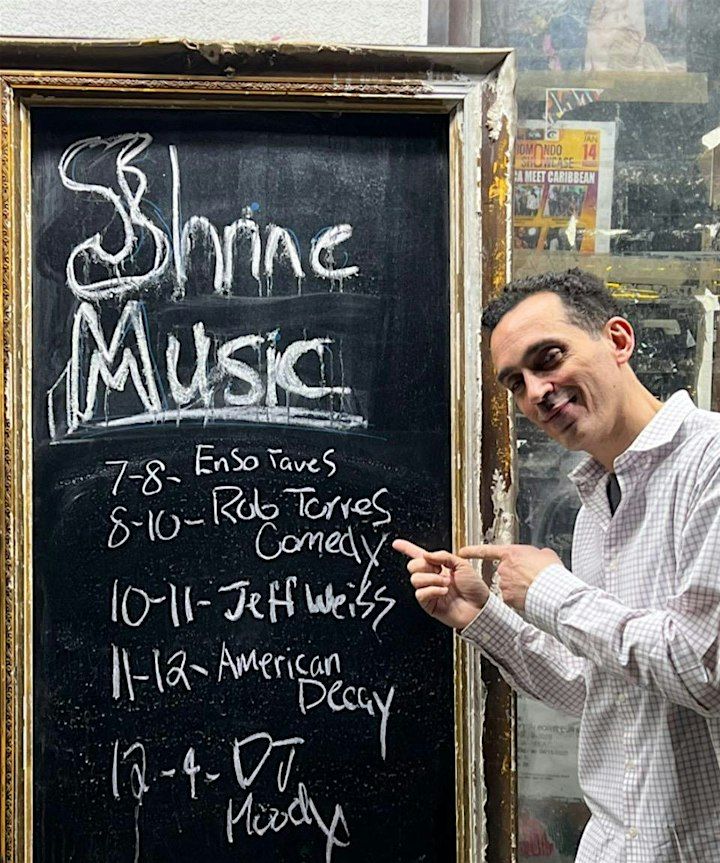 Shrine
Music
7-8- Enso Taves
8-10- Rob Torres
Comedy
10-11- Jeff Weiss
11-12- American
Decay
12-4- DJ
Moody
JAN
14
SHOWCASE
MEET CARIBBEAN